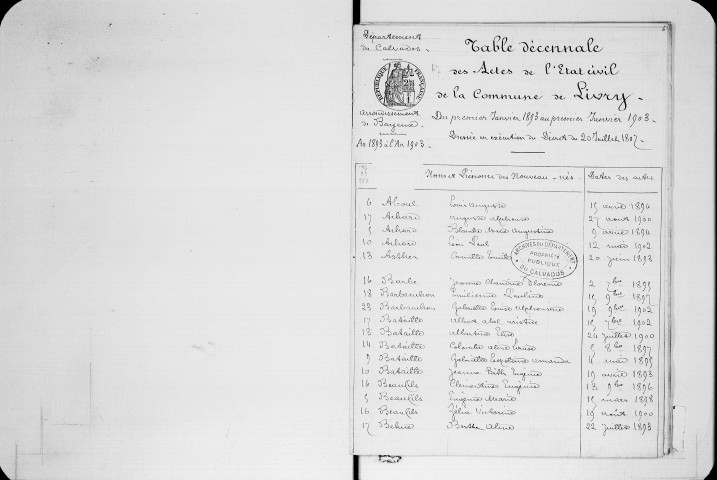 Département
du Calvados.
Table décennale
des Actes de l'Etat civil
RÉPUBLIQUE FRANÇAISE
de la Commune de Livry.
arrondissement
de Bayeux
Du premier Janvier 1893 au premier Janvier 1903.
An 1893 à l'An 1903.
Dressée en exécution du Décret du 20 Juillet 1807.
Noms et Prénoms des Nouveau-nés Dates des actes
6 Aboul Louis Auguste 15 avril 1894
17 Achard Auguste Alphonse 27 août 1900
5 Achard Blanche Marie Augustine 9 avril 1894
10 Achard Paul 12 mai 1902
13 Camille 20 juin 1898
ARCHIVES DU DÉPARTEMENT
PROPRIÉTÉ
PUBLIQUE
DU CALVADOS
16 Barbe Jeanne 2 7bre 1895
18 Barbanchon Emilienne Pauline 15 9bre 1897
23 Barbanchon Gabrielle Louise Alphonsine 19 9bre 1902
17 Bataille Albert Abel 15 7bre 1902
18 Bataille Albertine 24 juillet 1900
14 Bataille Colombe Aline Louise 5 8bre 1897
9 Bataille Gabrielle Léopoldine Amanda 4 mai 1895
10 Bataille Jeanne Eugénie 19 avril 1893
16 Beaufils Clémentine Eugénie 13 9bre 1896
5 Beaufils Eugénie Marie 15 mars 1898
16 Beaufils Zélia Victorine 19 août 1900
17 Berthe Aline 22 juillet 1893